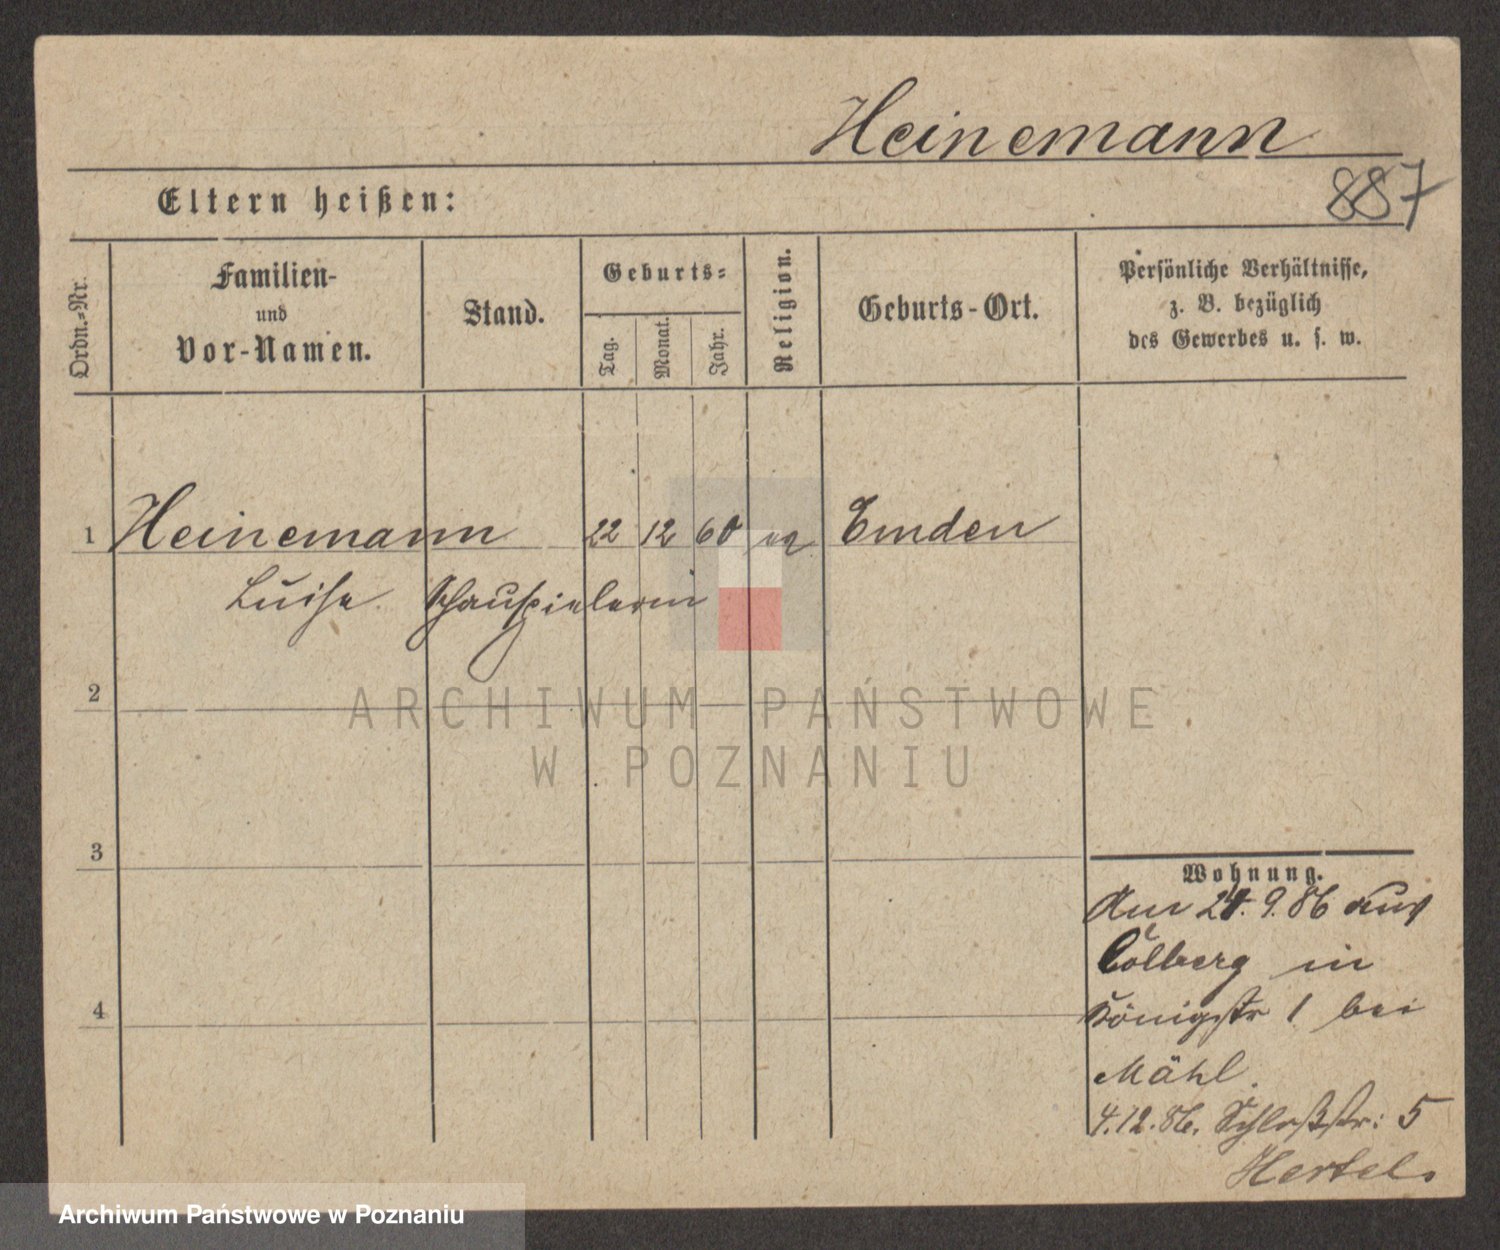 Heinemann
887
Eltern heißen:
Ordn.-Nr.
Familien-
und
Vor-Namen.
Stand.
Geburts-
Tag.
Monat.
Jahr.
Religion.
Geburts-Ort.
Persönliche Verhältnisse,
z. B. bezüglich
des Gewerbes u. s. w.
1 Heinemann 22 12 60 Emden
Luise Schauspielerin
2
ARCHIWUM PAŃSTWOWE
W POZNANIU
3
Wohnung.
9. 86 aus
Colberg in
Königstr 1 bei
Mähl.
4
4.12.86. Schloßstr: 5
Hertel.
Archiwum Państwowe w Poznaniu